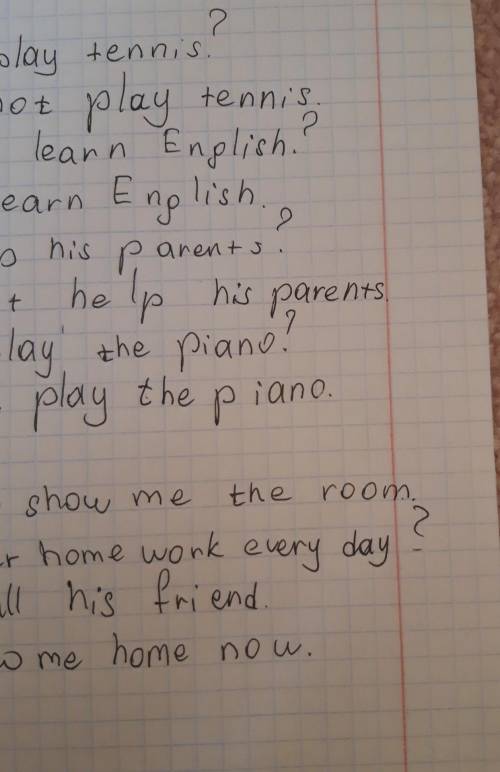 play tennis?
not play tennis.
learn English?
learn English.
his parents?
help his parents.
play the piano?
play the piano.
show me the room.
home work every day?
his friend.
me home now.